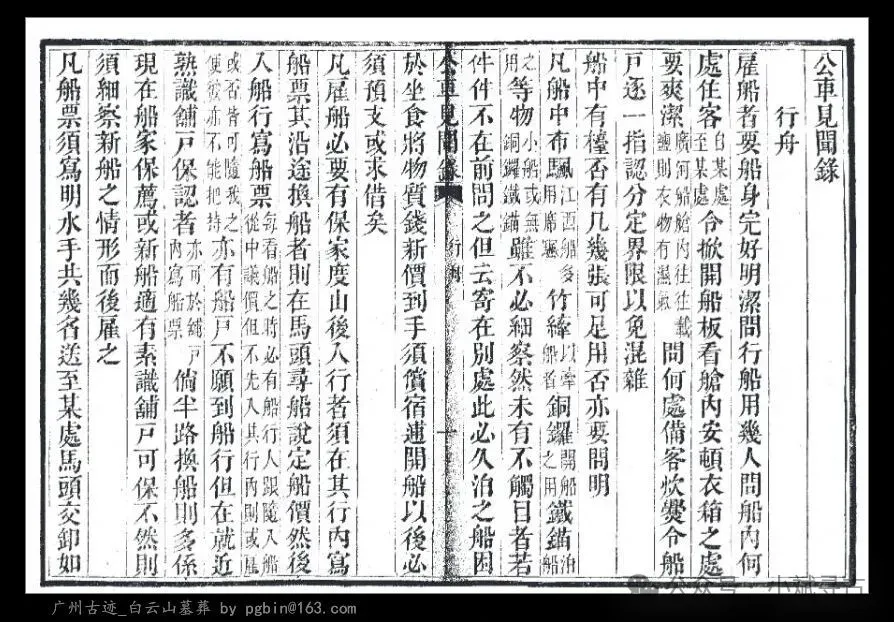 公車見聞錄
行舟
雇船者要船身完好明潔問行船用幾人問船內何
處住客自某處至某處令掀開船板看艙內安頓衣箱之處
要爽潔廣河船艙內往往載鹽則衣物有濕氣問何處備客炊爨令船
戶逐一指認分定界限以免混雜
船中有檯否有几幾張可足用否亦要問明
凡船中布颿江西船多用席颿竹縴以牽船者銅鑼開船之用鐵錨泊船
之用等物小船或無銅鑼鐵錨雖不必細察然未有不觸目者若
件件不在前問之但云寄在別處此必久泊之船困
公車見聞錄 行舟 一
於坐食將物質錢新價到手須償宿逋開船以後必
須預支或求借矣
凡雇船必要有保家度山後入行者須在其行內寫
船票其沿途換船者則在馬頭尋船說定船價然後
入船行寫船票每看船之時必有船行人跟隨入船從中議價但不先入其行內則或雇
或否皆可隨我之便彼亦不能把持亦有船戶不願到船行但在就近
熟識舖戶保認者亦可於舖戶內寫船票倘半路換船則多係
現在船家保薦或新船適有素識舖戶可保不然則
須細察新船之情形而後雇之
凡船票須寫明水手共幾名送至某處馬頭交卸如
公众号·小斌寻古
广州古迹_白云山墓葬 by pgbin@163.com